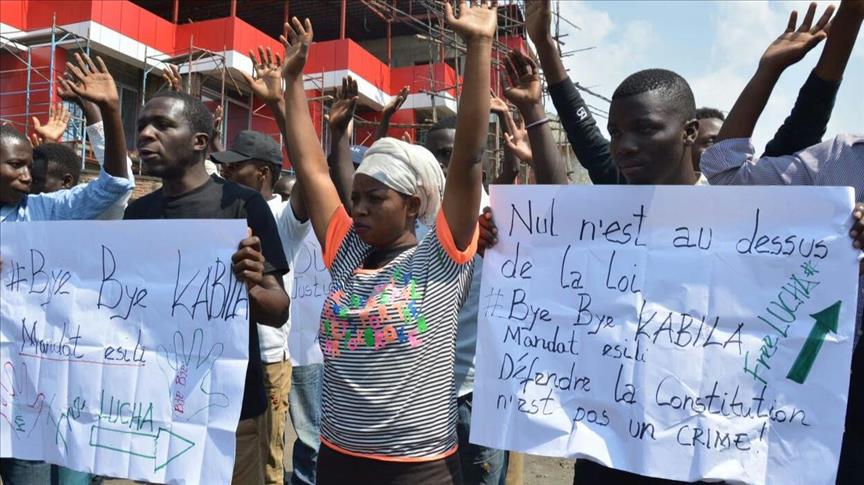 #Bye Bye KABILA
Mandat esili
Bye Bye
LUCHA
Justice
Nul n'est au dessus
de la loi
#Bye Bye KABILA
Mandat esili
Free LUCHA*
Défendre la Constitution
n'est pas un CRIME!